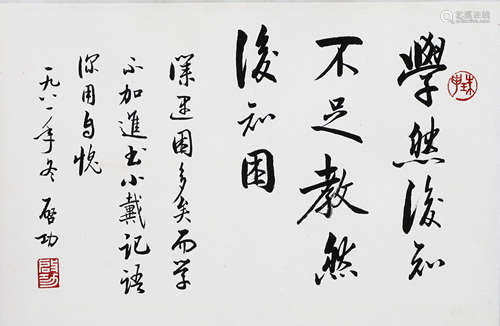 學然後知
不足教然
後知困
業遇困多矣而学
不加進书小戴记語
深用自愧
一九八一年冬 启功